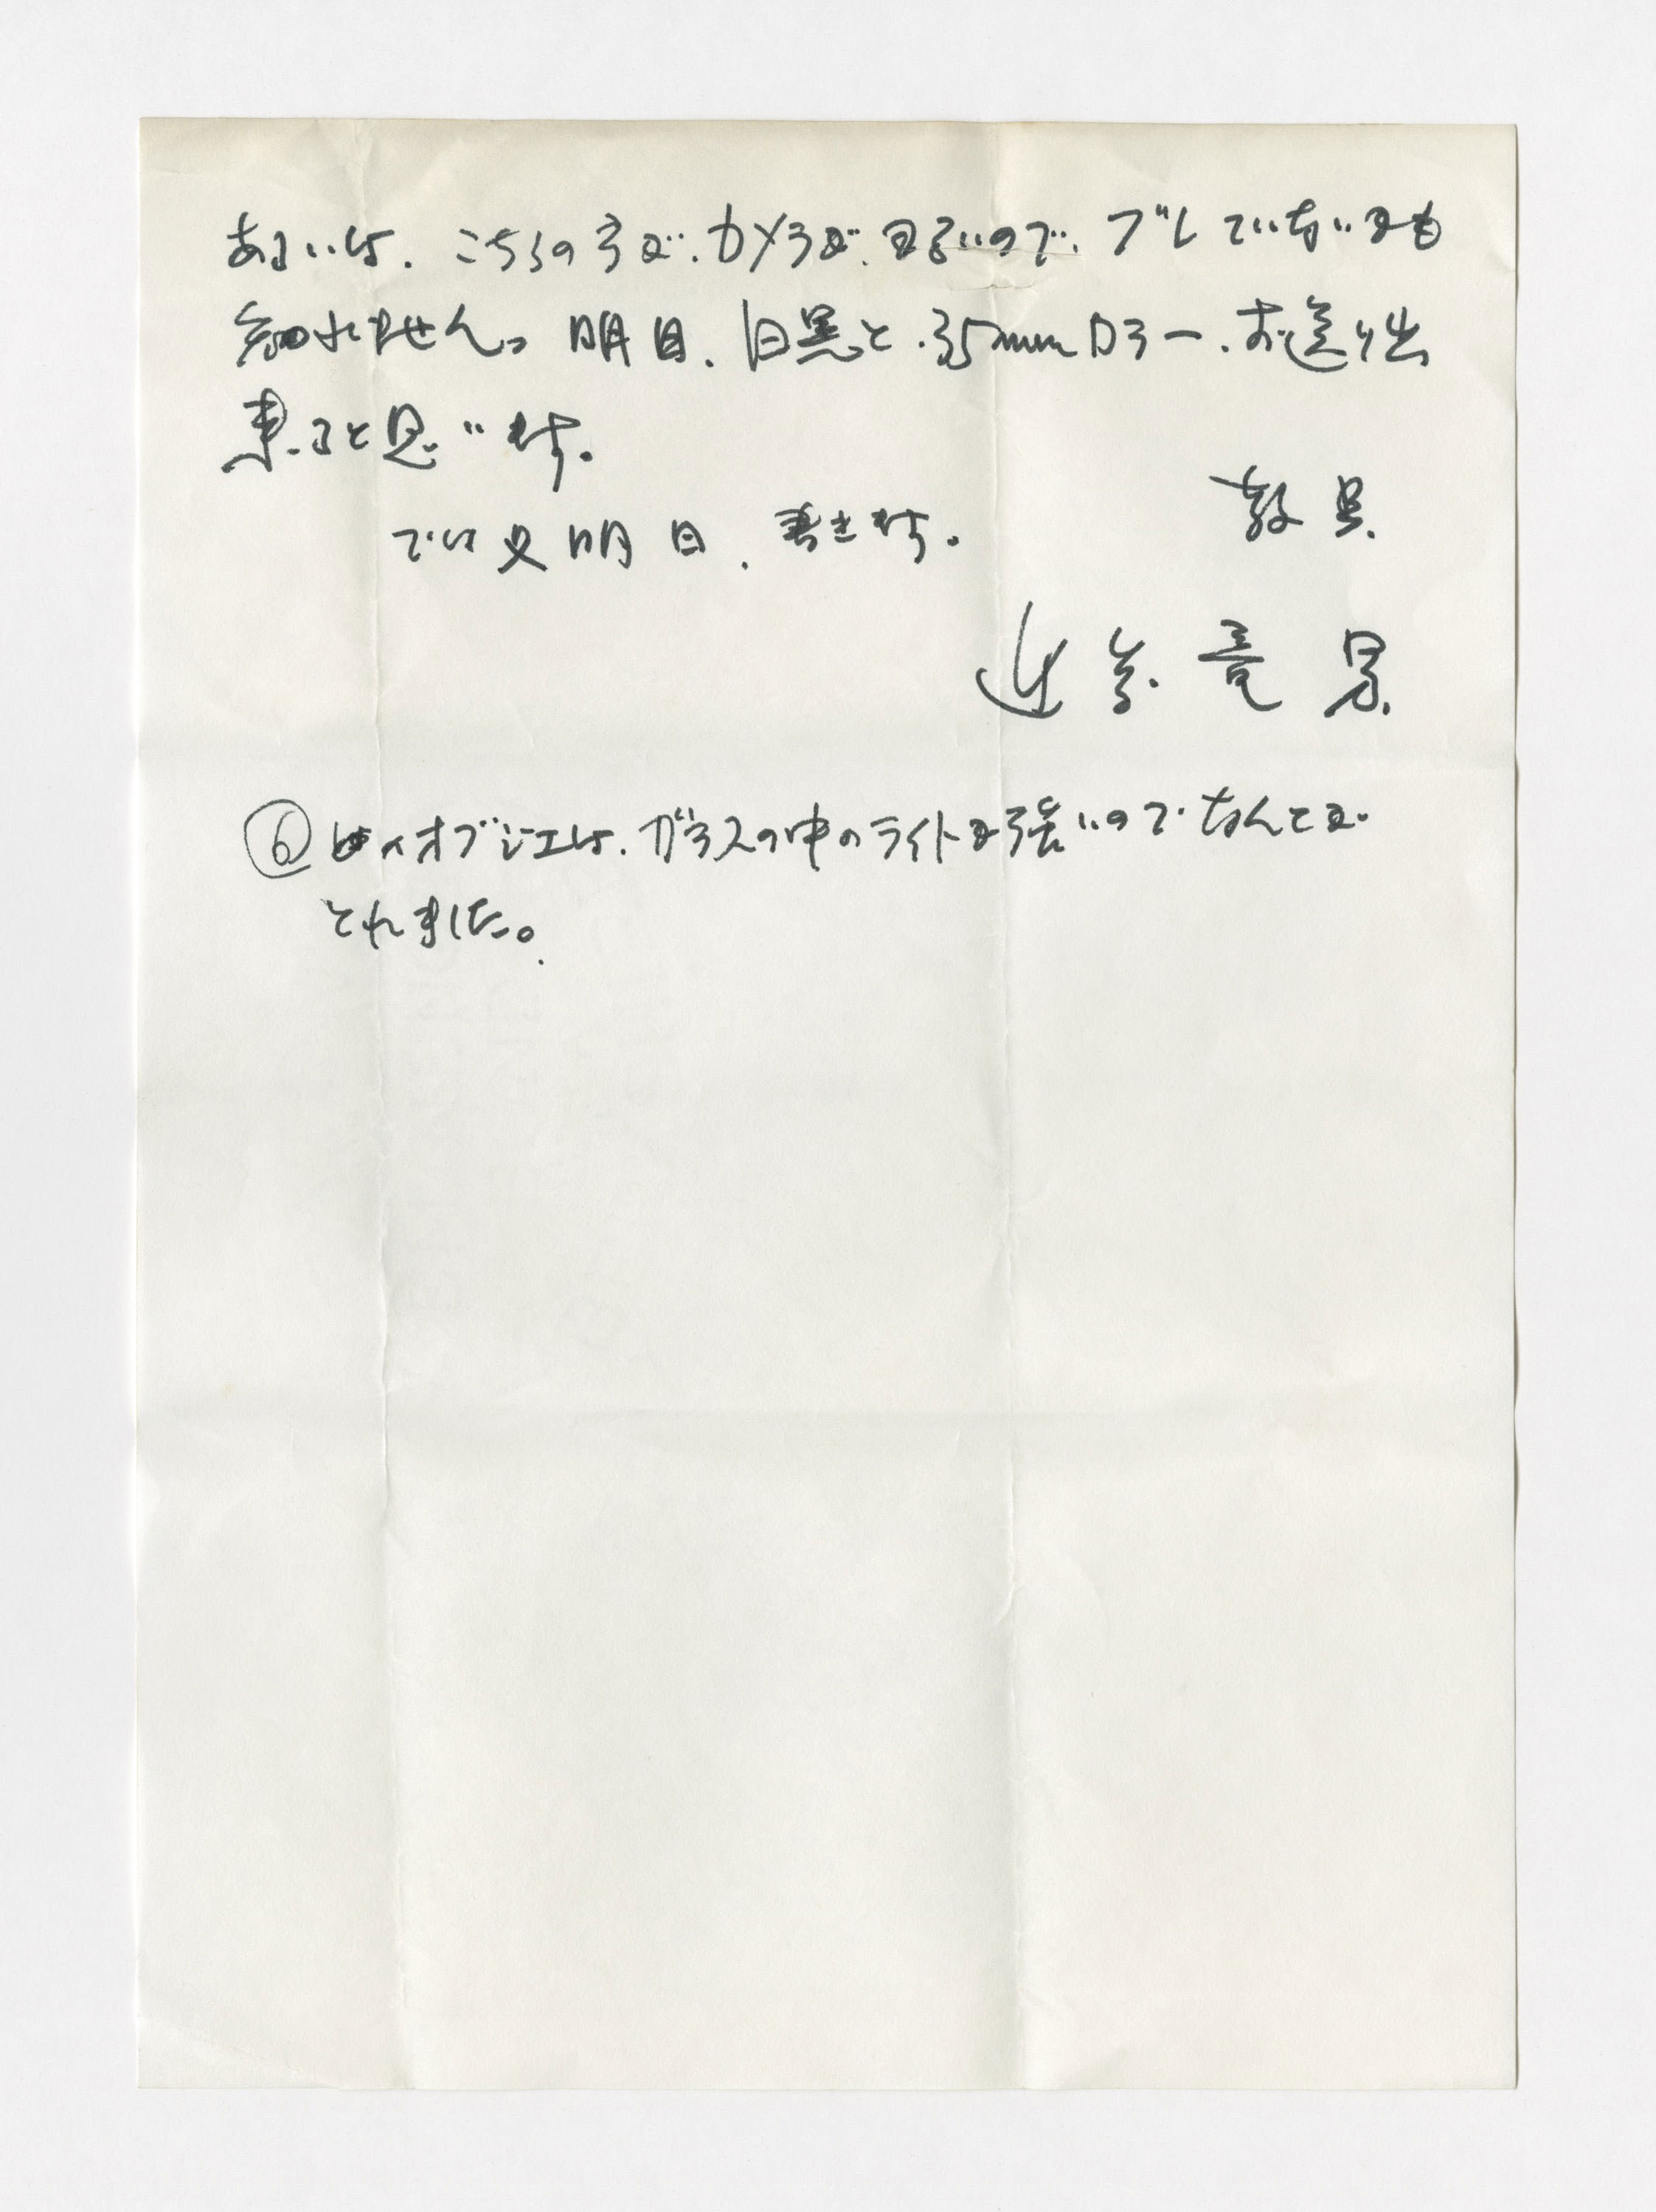 あるいは、こちらの方が、カメラが良いので、ブレていないかも
知れません。明日、白黒と、35mmカラー、お送り出
来ると思います。
では又明日、書きます。
敬具
近藤竜男
⑥ オブジェは、ガラスの中のライトが強いので、なんとか
とれました。